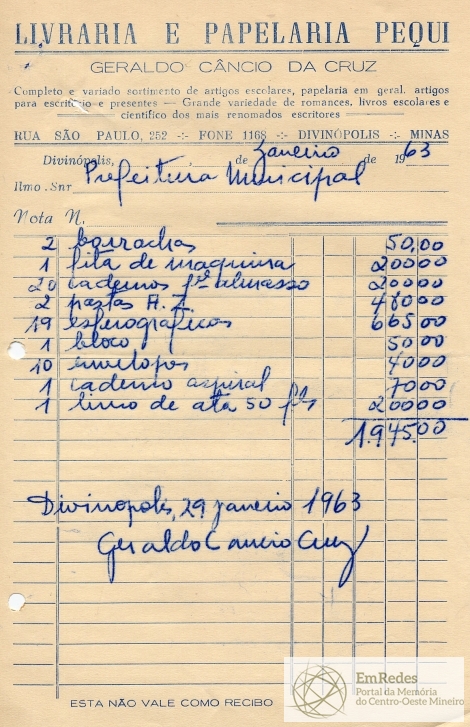 LIVRARIA E PAPELARIA PEQUI
GERALDO CÂNCIO DA CRUZ
Completo e variado sortimento de artigos escolares, papelaria em geral, artigos
para escritório e presentes — Grande variedade de romances, livros escolares e
científico dos mais renomados escritores
RUA SÃO PAULO, 252 -:- FONE 1168 -:- DIVINÓPOLIS -:- MINAS
Divinópolis, de Janeiro de 1963
Ilmo. Snr. Prefeitura Municipal
Nota N.
2 borrachas 50,00
1 fita de maquina 20000
20 cadernos pª almasso 20000
2 pastas A. Z. 48000
19 esferograficas 66500
1 bloco 5000
10 envelopes 4000
1 caderno aspiral 7000
1 livro de ata 50 fls 20000
1.945,00
Divinopolis, 29 janeiro 1963
Geraldo Cancio Cruz
ESTA NÃO VALE COMO RECIBO
EmRedes
Portal da Memória
do Centro-Oeste Mineiro